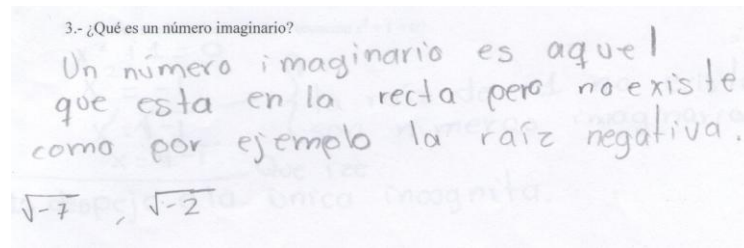 3.- ¿Qué es un número imaginario?
Un número imaginario es aquel
que esta en la recta pero no existe
como por ejemplo la raíz negativa.
√-7 , √-2